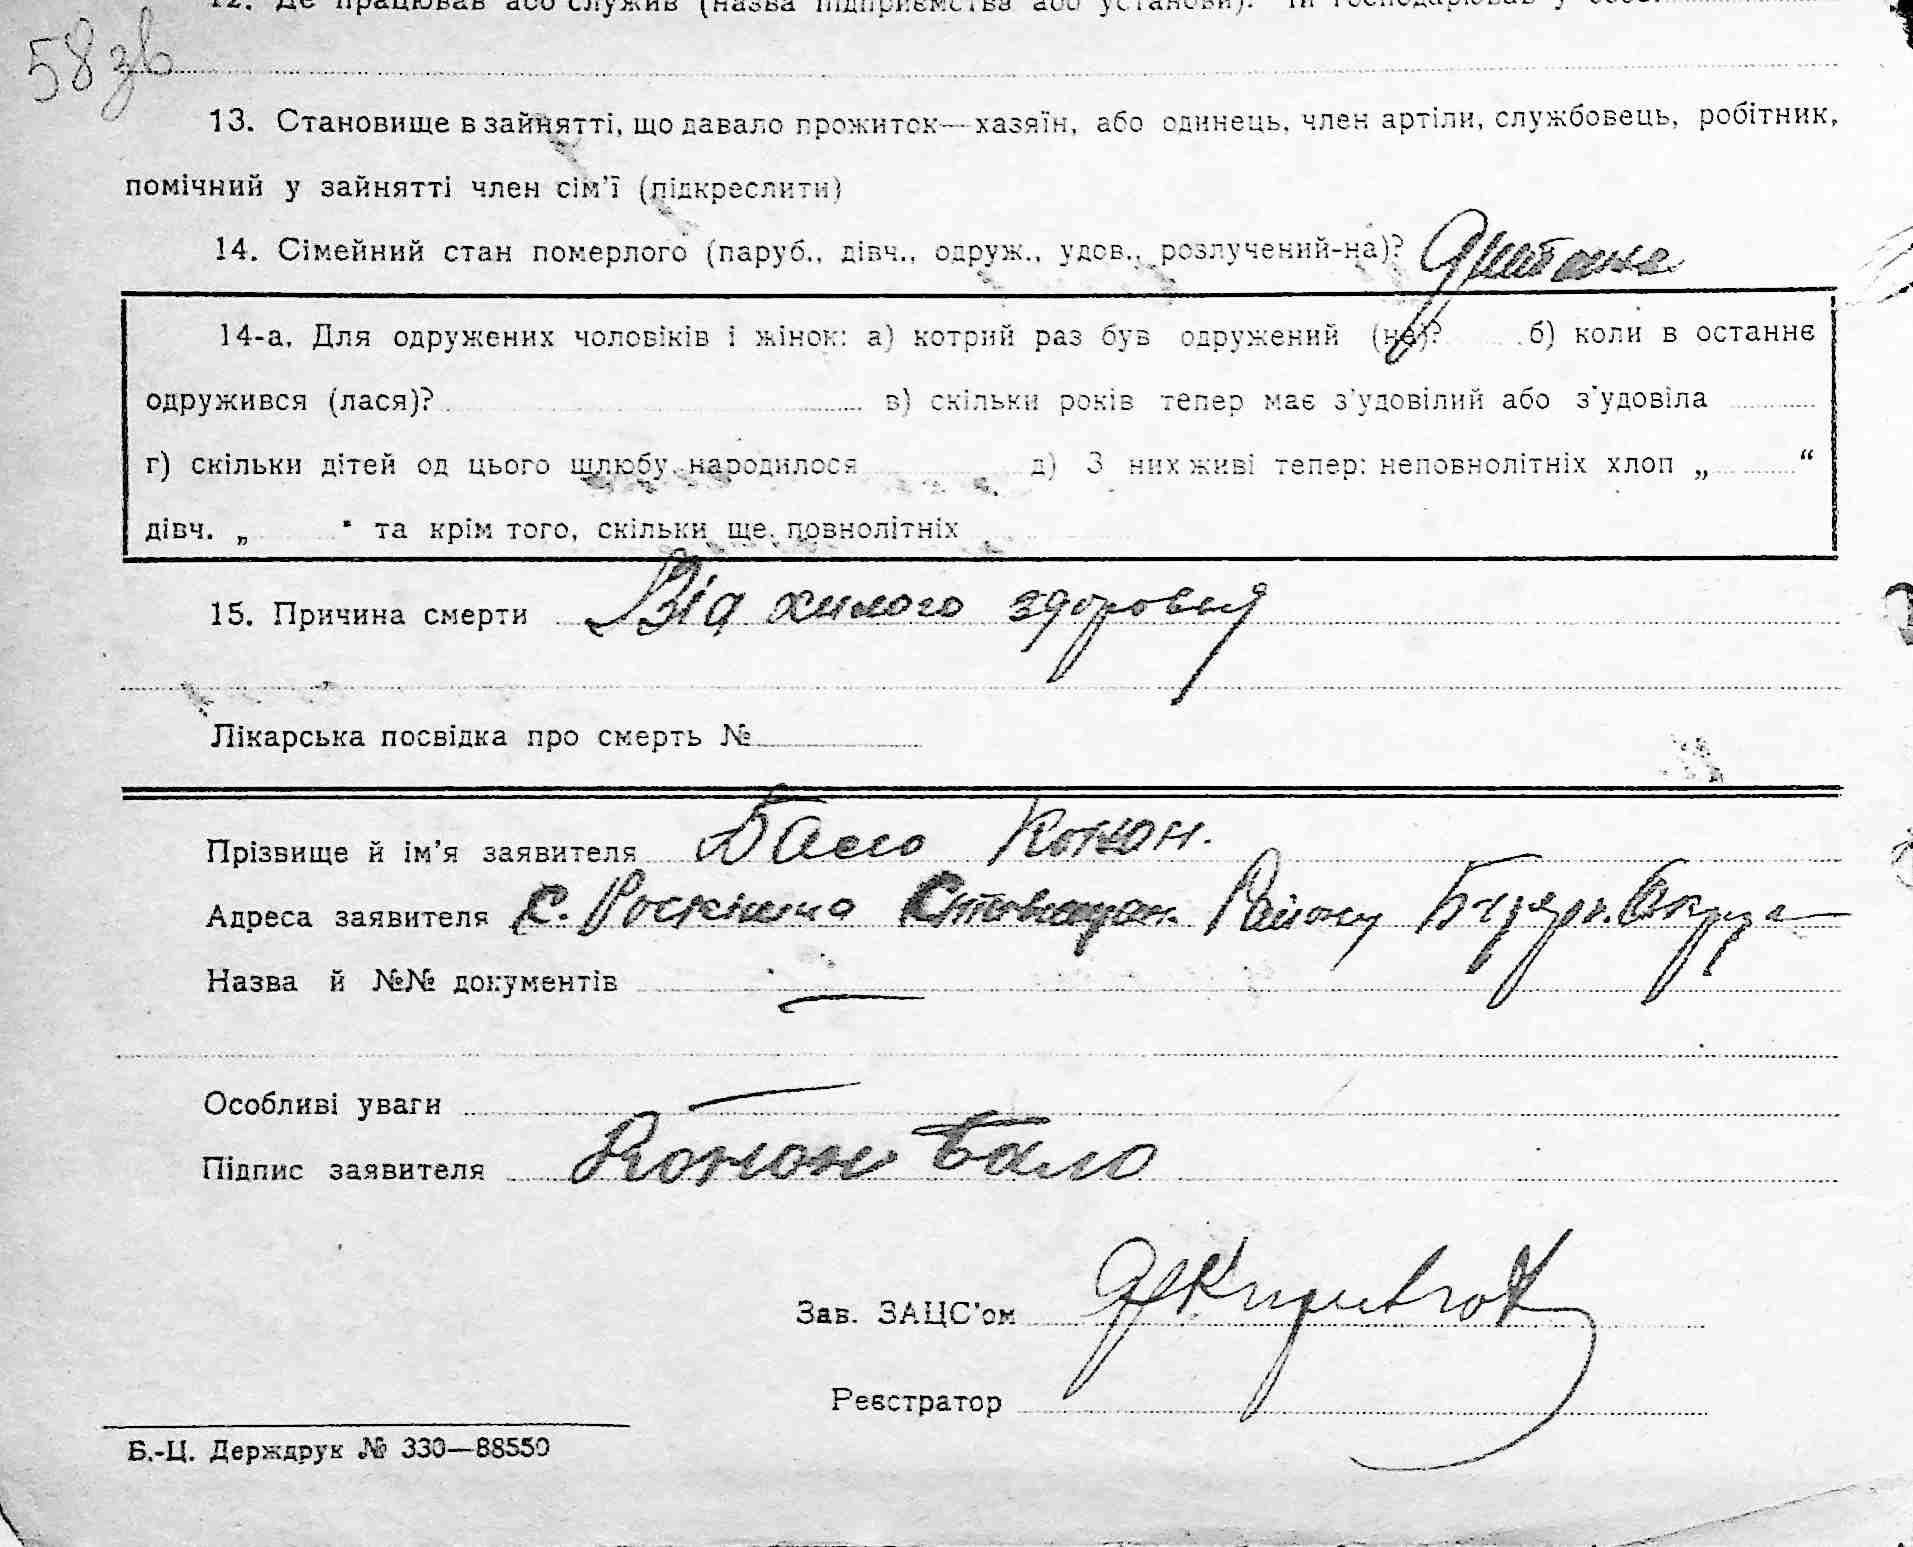 12. Де працював або служив (назва підприємства або установи). Чи господарював у себе.
58 зв
13. Становище в зайнятті, що давало прожиток—хазяїн, або одинець, член артіли, службовець, робітник,
помічний у зайнятті член сім'ї (підкреслити)
14. Сімейний стан померлого (паруб., дівч., одруж., удов., розлучений-на)? Дитина
14-а. Для одружених чоловіків і жінок: а) котрий раз був одружений (на)? б) коли в останнє
одружився (лася)? в) скільки років тепер має з'удовілий або з'удовіла
г) скільки дітей од цього шлюбу народилося д) З них живі тепер: неповнолітніх хлоп „ “
дівч. „ “ та крім того, скільки ще повнолітніх
15. Причина смерти Від хилого здоровья
Лікарська посвідка про смерть №
Прізвище й ім'я заявителя Бало Конон.
Адреса заявителя с. Району Округа
Назва й №№ документів —
Особливі уваги —
Підпис заявителя Конон Бало
Зав. ЗАЦС'ом
Реєстратор
Б.-Ц. Держдрук № 330—88550